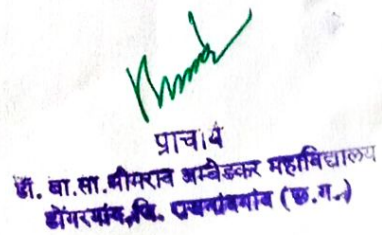 प्राचार्य
डॉ. बा.सा.भीमराव अम्बेडकर महाविद्यालय
डोंगरगांव, जि. राजनांदगांव (छ.ग.)